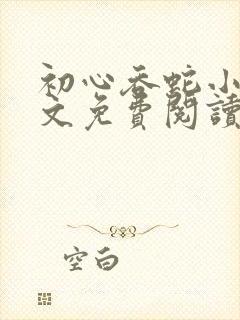 初心吞蛇小
文免費閱讀
空白